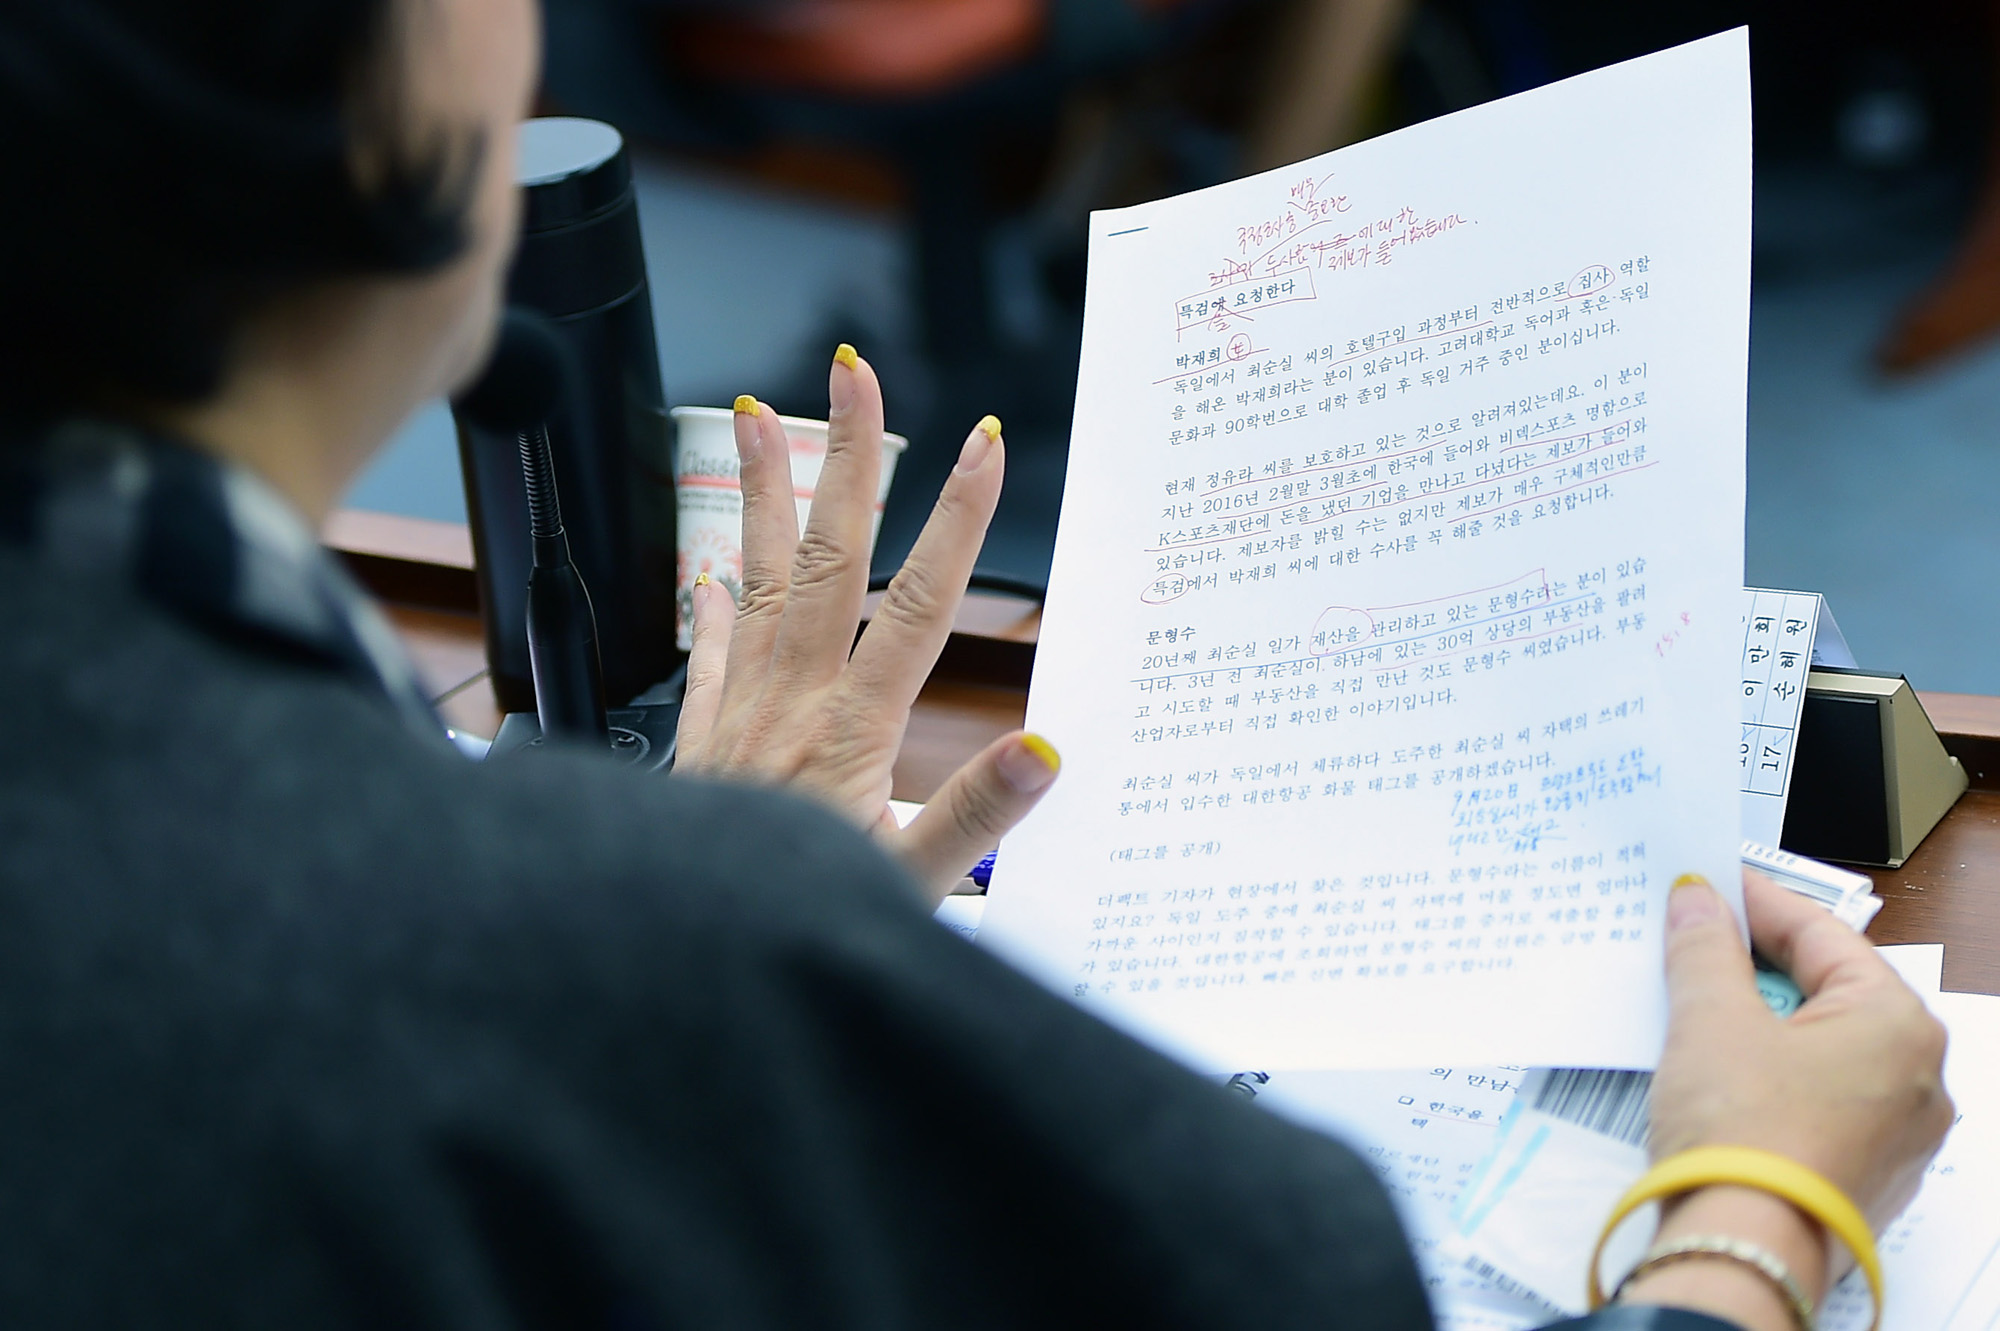 매우
국정조사중 중요한
에 대한
제보가 들어왔습니다.
특검에 요청한다
박재희 女
독일에서 최순실 씨의 호텔구입 과정부터 전반적으로 집사 역할
을 해온 박재희라는 분이 있습니다. 고려대학교 독어과 혹은 독일
문화과 90학번으로 대학 졸업 후 독일 거주 중인 분이십니다.
현재 정유라 씨를 보호하고 있는 것으로 알려져있는데요. 이 분이
지난 2016년 2월말 3월초에 한국에 들어와 비덱스포츠 명함으로
K스포츠재단에 돈을 냈던 기업을 만나고 다녔다는 제보가 들어와
있습니다. 제보자를 밝힐 수는 없지만 제보가 매우 구체적인만큼
특검에서 박재희 씨에 대한 수사를 꼭 해줄 것을 요청합니다.
문형수
20년째 최순실 일가 재산을 관리하고 있는 문형수라는 분이 있습
니다. 3년 전 최순실이 하남에 있는 30억 상당의 부동산을 팔려
고 시도할 때 부동산을 직접 만난 것도 문형수 씨였습니다. 부동
산업자로부터 직접 확인한 이야기입니다.
최순실 씨가 독일에서 체류하다 도주한 최순실 씨 자택의 쓰레기
통에서 입수한 대한항공 화물 태그를 공개하겠습니다.
9月20日
(태그를 공개)
더팩트 기자가 현장에서 찾은 것입니다. 문형수라는 이름이 적혀
있지요? 독일 도주 중에 최순실 씨 자택에 머물 정도면 얼마나
가까운 사이인지 짐작할 수 있습니다. 태그를 증거로 제출할 용의
가 있습니다. 대한항공에 조회하면 문형수 씨의 신원은 금방 확보
할 수 있을 것입니다. 빠른 신변 확보를 요구합니다.
Classi
이만희
17 손혜원
의 만남
한국을
택
미르재단